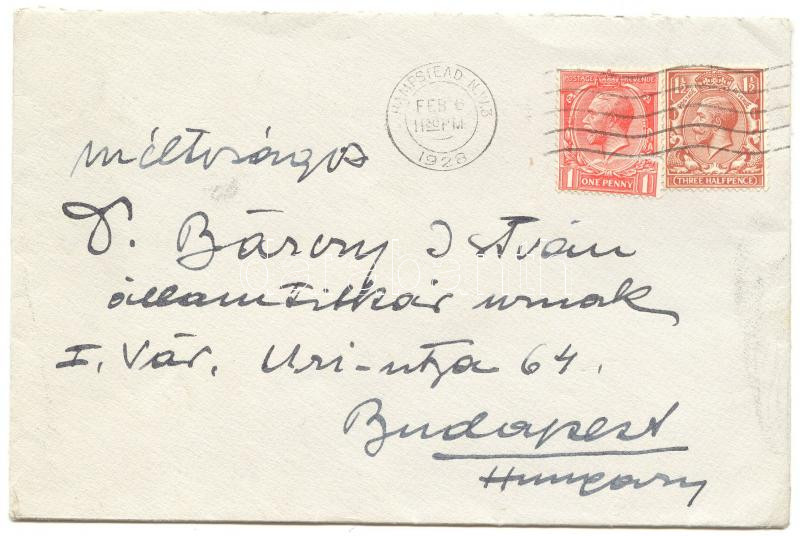 HAMPSTEAD. N.W.3
FEB 6
11 30 PM
1928
POSTAGE REVENUE
1 ONE PENNY 1
1½ 1½
THREE HALFPENCE
méltóságos
D. Bárczy István
államtitkár urnak
I. Vár. Uri-utca 64.
Budapest
Hungary